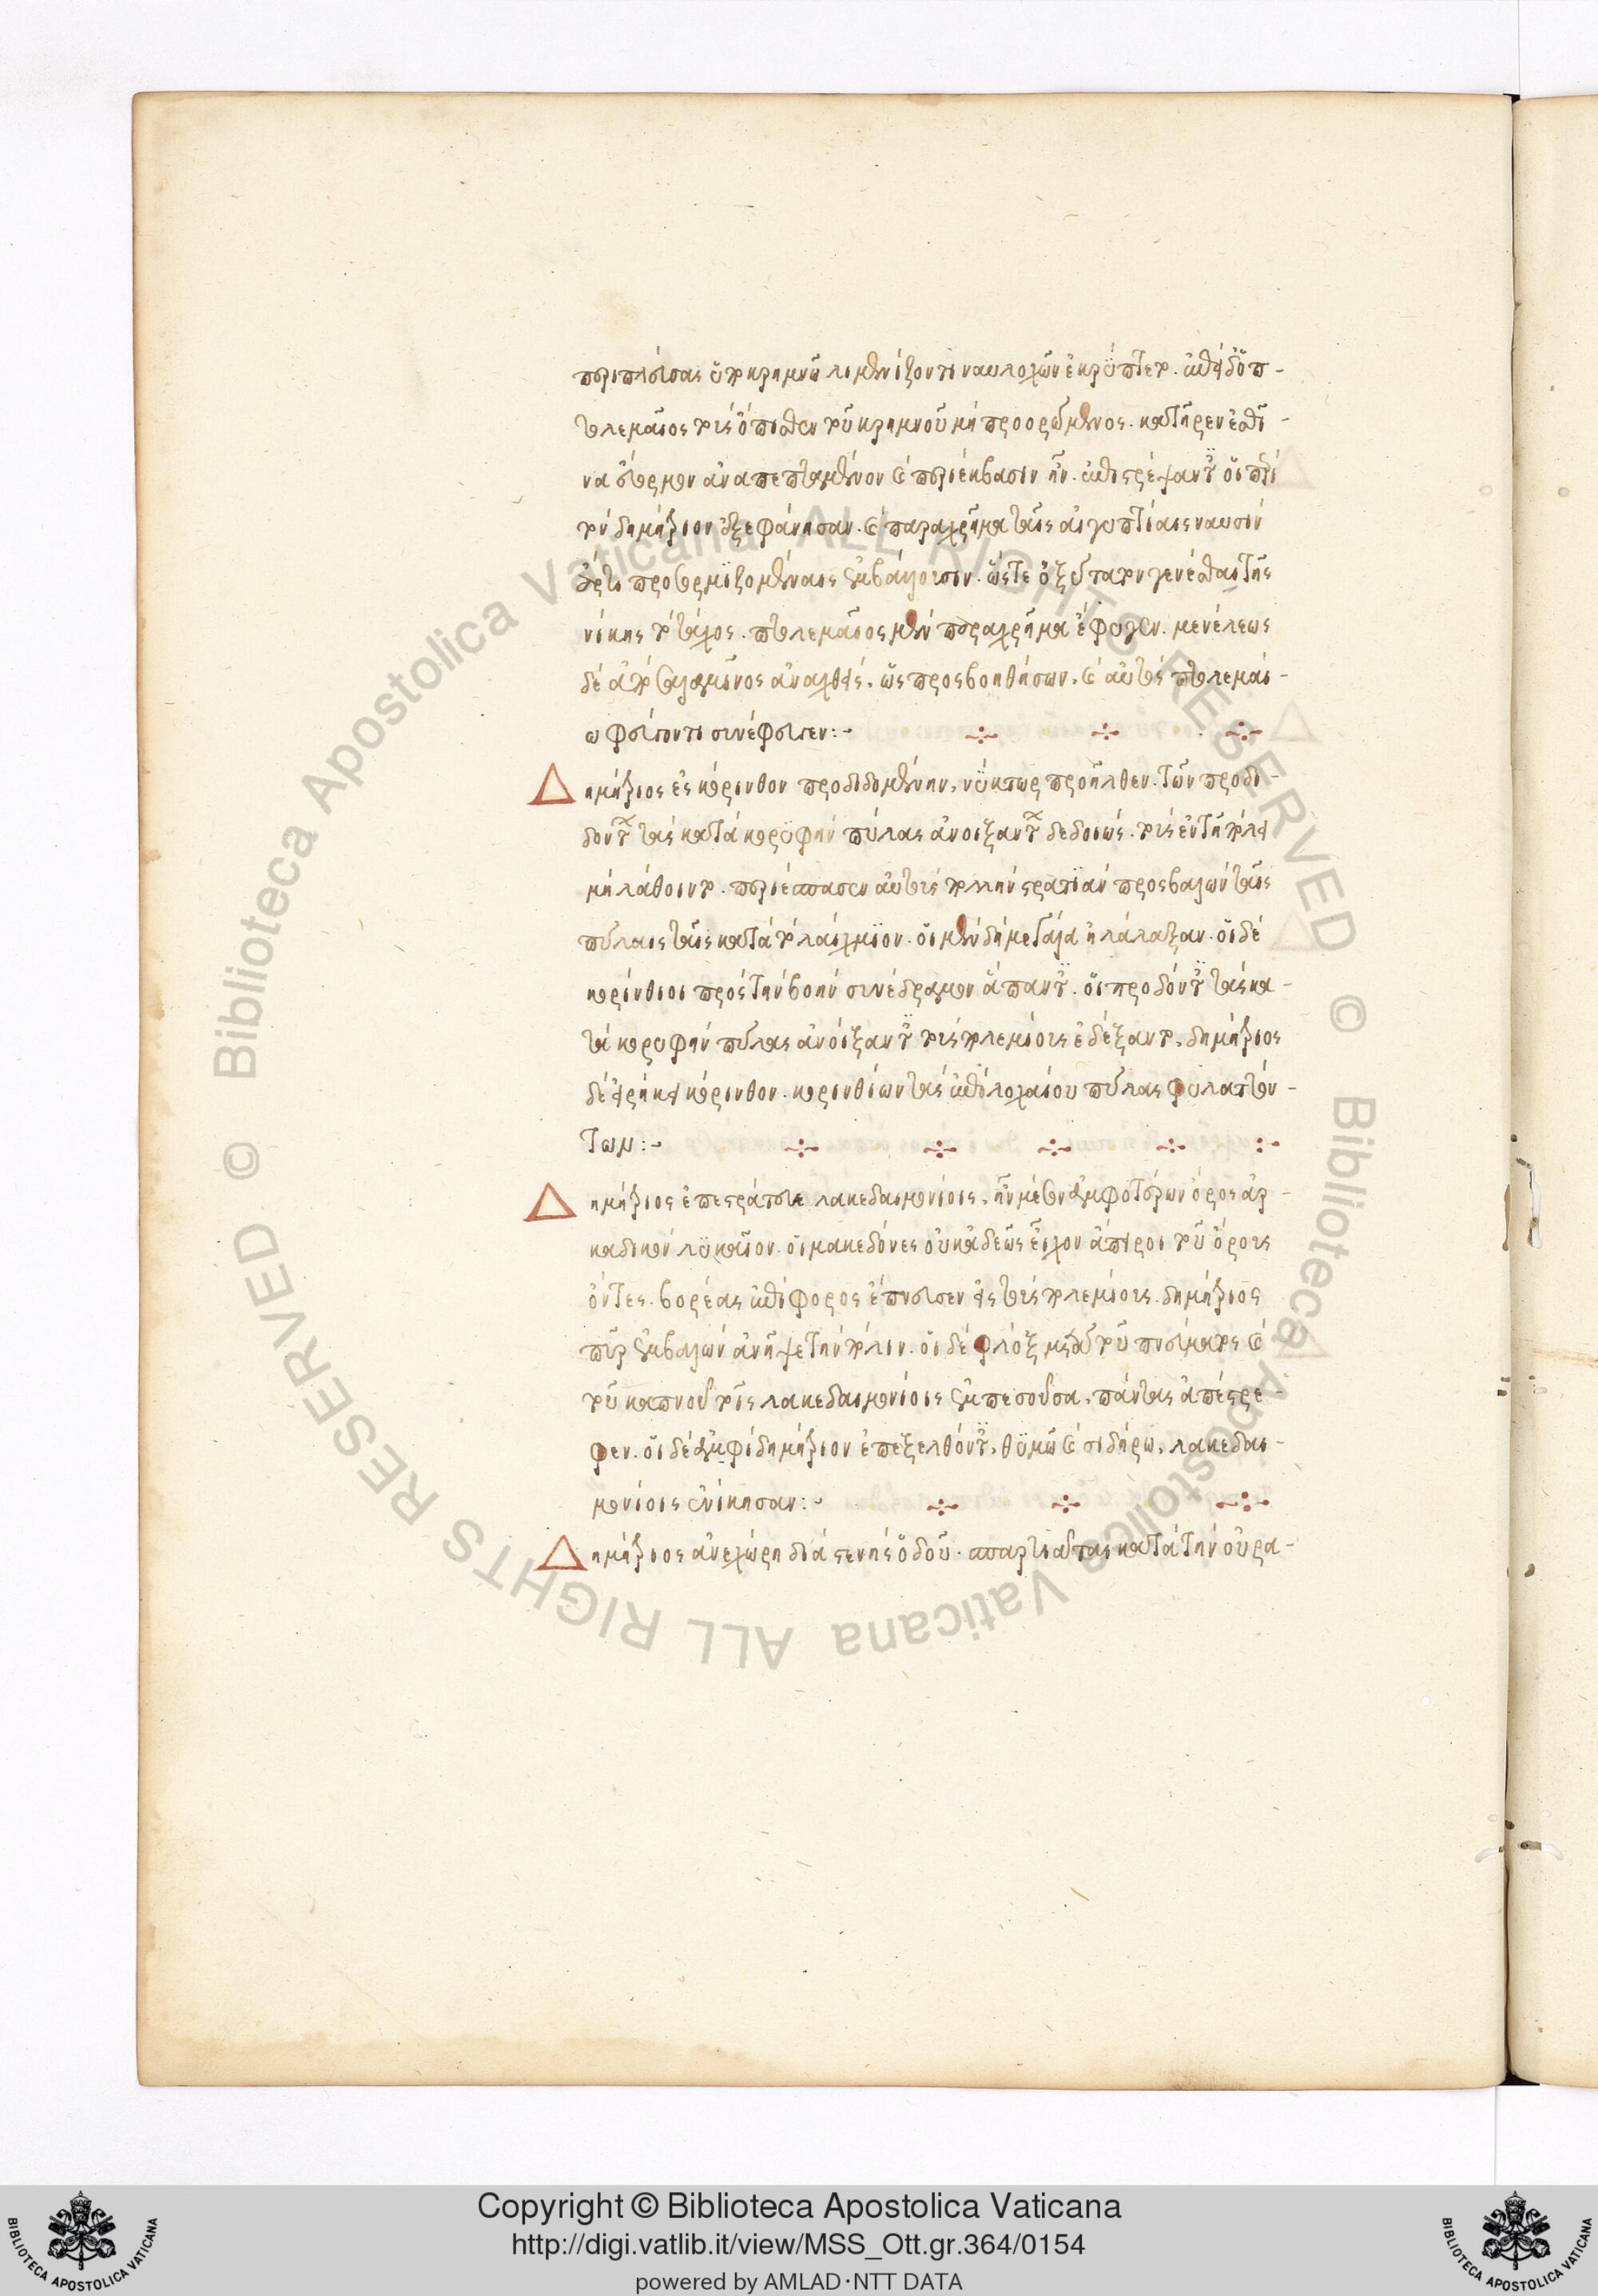 περιπλεύσας ὑπὸ κρημνῶ λιμενίζοντι ναυλοχῶν ἐκρύπτετο. ἐπεὶ δὲ ὁ π-
τολεμαῖος τοὺς ὄπισθεν τοῦ κρημνοῦ μὴ προορώμενος. κατῆρεν ἐπί τι-
να ὅρμον ἀναπεπταμένον καὶ περὶ ἔκβασιν ἦν. ἐπιστρέψαντες οἱ περὶ
τὸν δημήτριον ἐξεφάνησαν. καὶ παραχρῆμα ταῖς αἰγυπτίαις ναυσὶν
ἄρτι προσορμιζομέναις ἐμβάλουσιν. ὥστε ὀξύτατον γενέσθαι τῆς
νίκης τὸ τάχος. πτολεμαῖος μὲν παραχρῆμα ἔφυγεν. μενέλεως
δὲ ἀπὸ σαλαμῖνος ἀναχθεὶς, ὡς προσβοηθήσων, καὶ αὐτὸς πτολεμαί-
ω φεύγοντι συνέφευγεν:-
Δημήτριος ἐς κόρινθον προδιδομένην, νύκτωρ προῆλθεν. τῶν προδι-
δόντων τὰς κατὰ κορυφὴν πύλας ἀνοιξάντων δεδοικὼς. τοὺς ἐν τῆ πόλει
μὴ λάθοιντο. περιέσπασεν αὐτοὺς πολλὴν στρατιὰν προσβαλὼν ταῖς
πύλαις ταῖς κατὰ τὸ λαίχμιον. οἱ μὲν δὴ μεγάλα ἠλάλαξαν. οἱ δὲ
κορίνθιοι πρὸς τὴν βοὴν συνέδραμον ἅπαντες. οἱ προδόντες τὰς κα-
τὰ κορυφὴν πύλας ἀνοίξαντες τοὺς πολεμίους ἐδέξαντο. δημήτριος
δὲ αἱρεῖ κόρινθον. κορινθίων τὰς ἐπὶ λοχαίου πύλας φυλαττόν-
των:-
Δημήτριος ἐπεστράτευε λακεδαιμονίοις, ἦν μέσον ἀμφοτέρων ὄρος ἀρ-
καδικὸν λύκαιον. οἱ μακεδόνες οὐκ ἀδεῶς εἶχον ἄπειροι τοῦ ὄρους
ὄντες. βορέας ἐπίφορος ἔπνευσεν εἰς τοὺς πολεμίους. δημήτριος
πῦρ ἐμβαλὼν ἀνῆψε τὴν πόλιν. οἱ δὲ φλὸξ μετὰ τοῦ πνεύματος καὶ
τοῦ καπνοῦ τοῖς λακεδαιμονίοις ἐμπεσοῦσα, πάντας ἀπέστρε-
φεν. οἱ δὲ ἀμφὶ δημήτριον ἐπεξελθόντες, θυμῶ καὶ σιδήρω, λακεδαι-
μονίους ἐνίκησαν:-
Δημήτριος ἀνεχώρη διὰ στενῆς ὁδοῦ. σπαρτιᾶται κατὰ τὴν οὐρα-
Copyright © Biblioteca Apostolica Vaticana
http://digi.vatlib.it/view/MSS_Ott.gr.364/0154
powered by AMLAD·NTT DATA